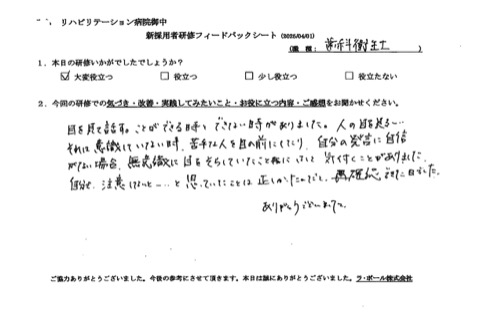 リハビリテーション病院御中
新採用者研修フィードバックシート（2025/04/01）
（職種：歯科衛生士
1．本日の研修いかがでしたでしょうか？
☑ 大変役立つ □ 役立つ □ 少し役立つ □ 役立たない
2．今回の研修での気づき・改善・実践してみたいこと・お役に立つ内容・ご感想をお聞かせください。
目を見て話す。ことができる時と できない時がありました。人の目を見る…
それは意識していない時、苦手な人を目の前にしたり、自分の発言に自信
がない場合、無意識に目をそらしていたこと 気付くことがありました。
自分も、注意しないと…と思っていたことは正しかったんだと、再確認できた
ありがとうございました。
ご協力ありがとうございました。今後の参考にさせて頂きます。本日は誠にありがとうございました。ラ・ポール株式会社